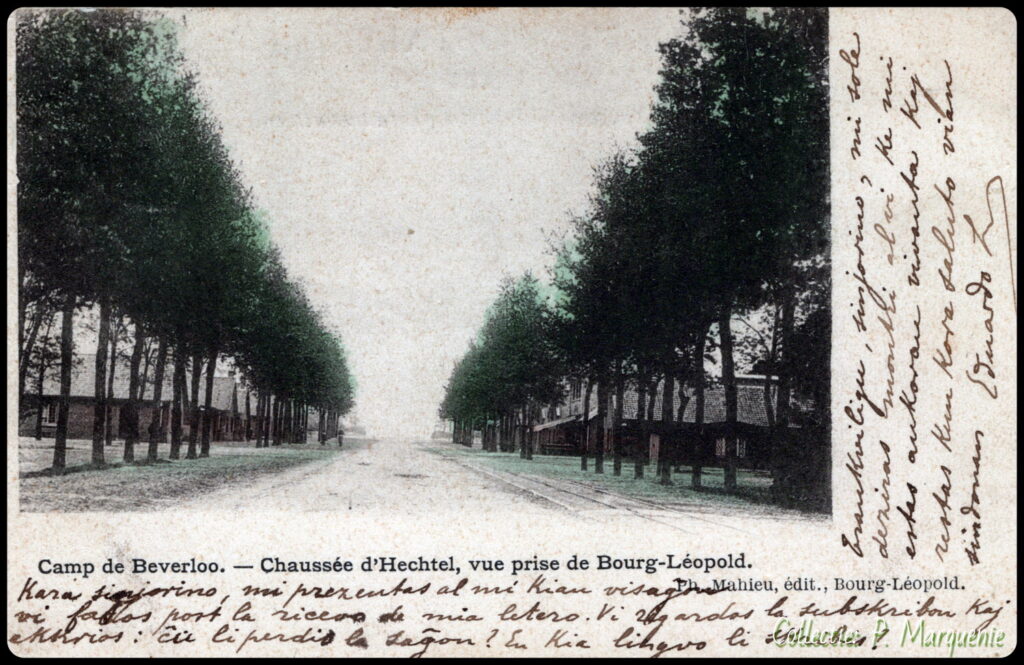 Camp de Beverloo. — Chaussée d'Hechtel, vue prise de Bourg-Léopold.
Ph. Mahieu, édit., Bourg-Léopold.
Kara sinjorino, mi prezentas al mi kian visagon
vi faros post la ricevo de mia letero. Vi regardos la subskribon kaj
ekkrios: ĉu li perdis la saĝon? En kia lingvo li
trankviliĝu, sinjorino, mi sole
deziras montri al vi ke mi
estas ankoraŭ vivanta kaj
restas kun kora saluto vian
sindonan Eduardo L
Collectie P. Marquenie